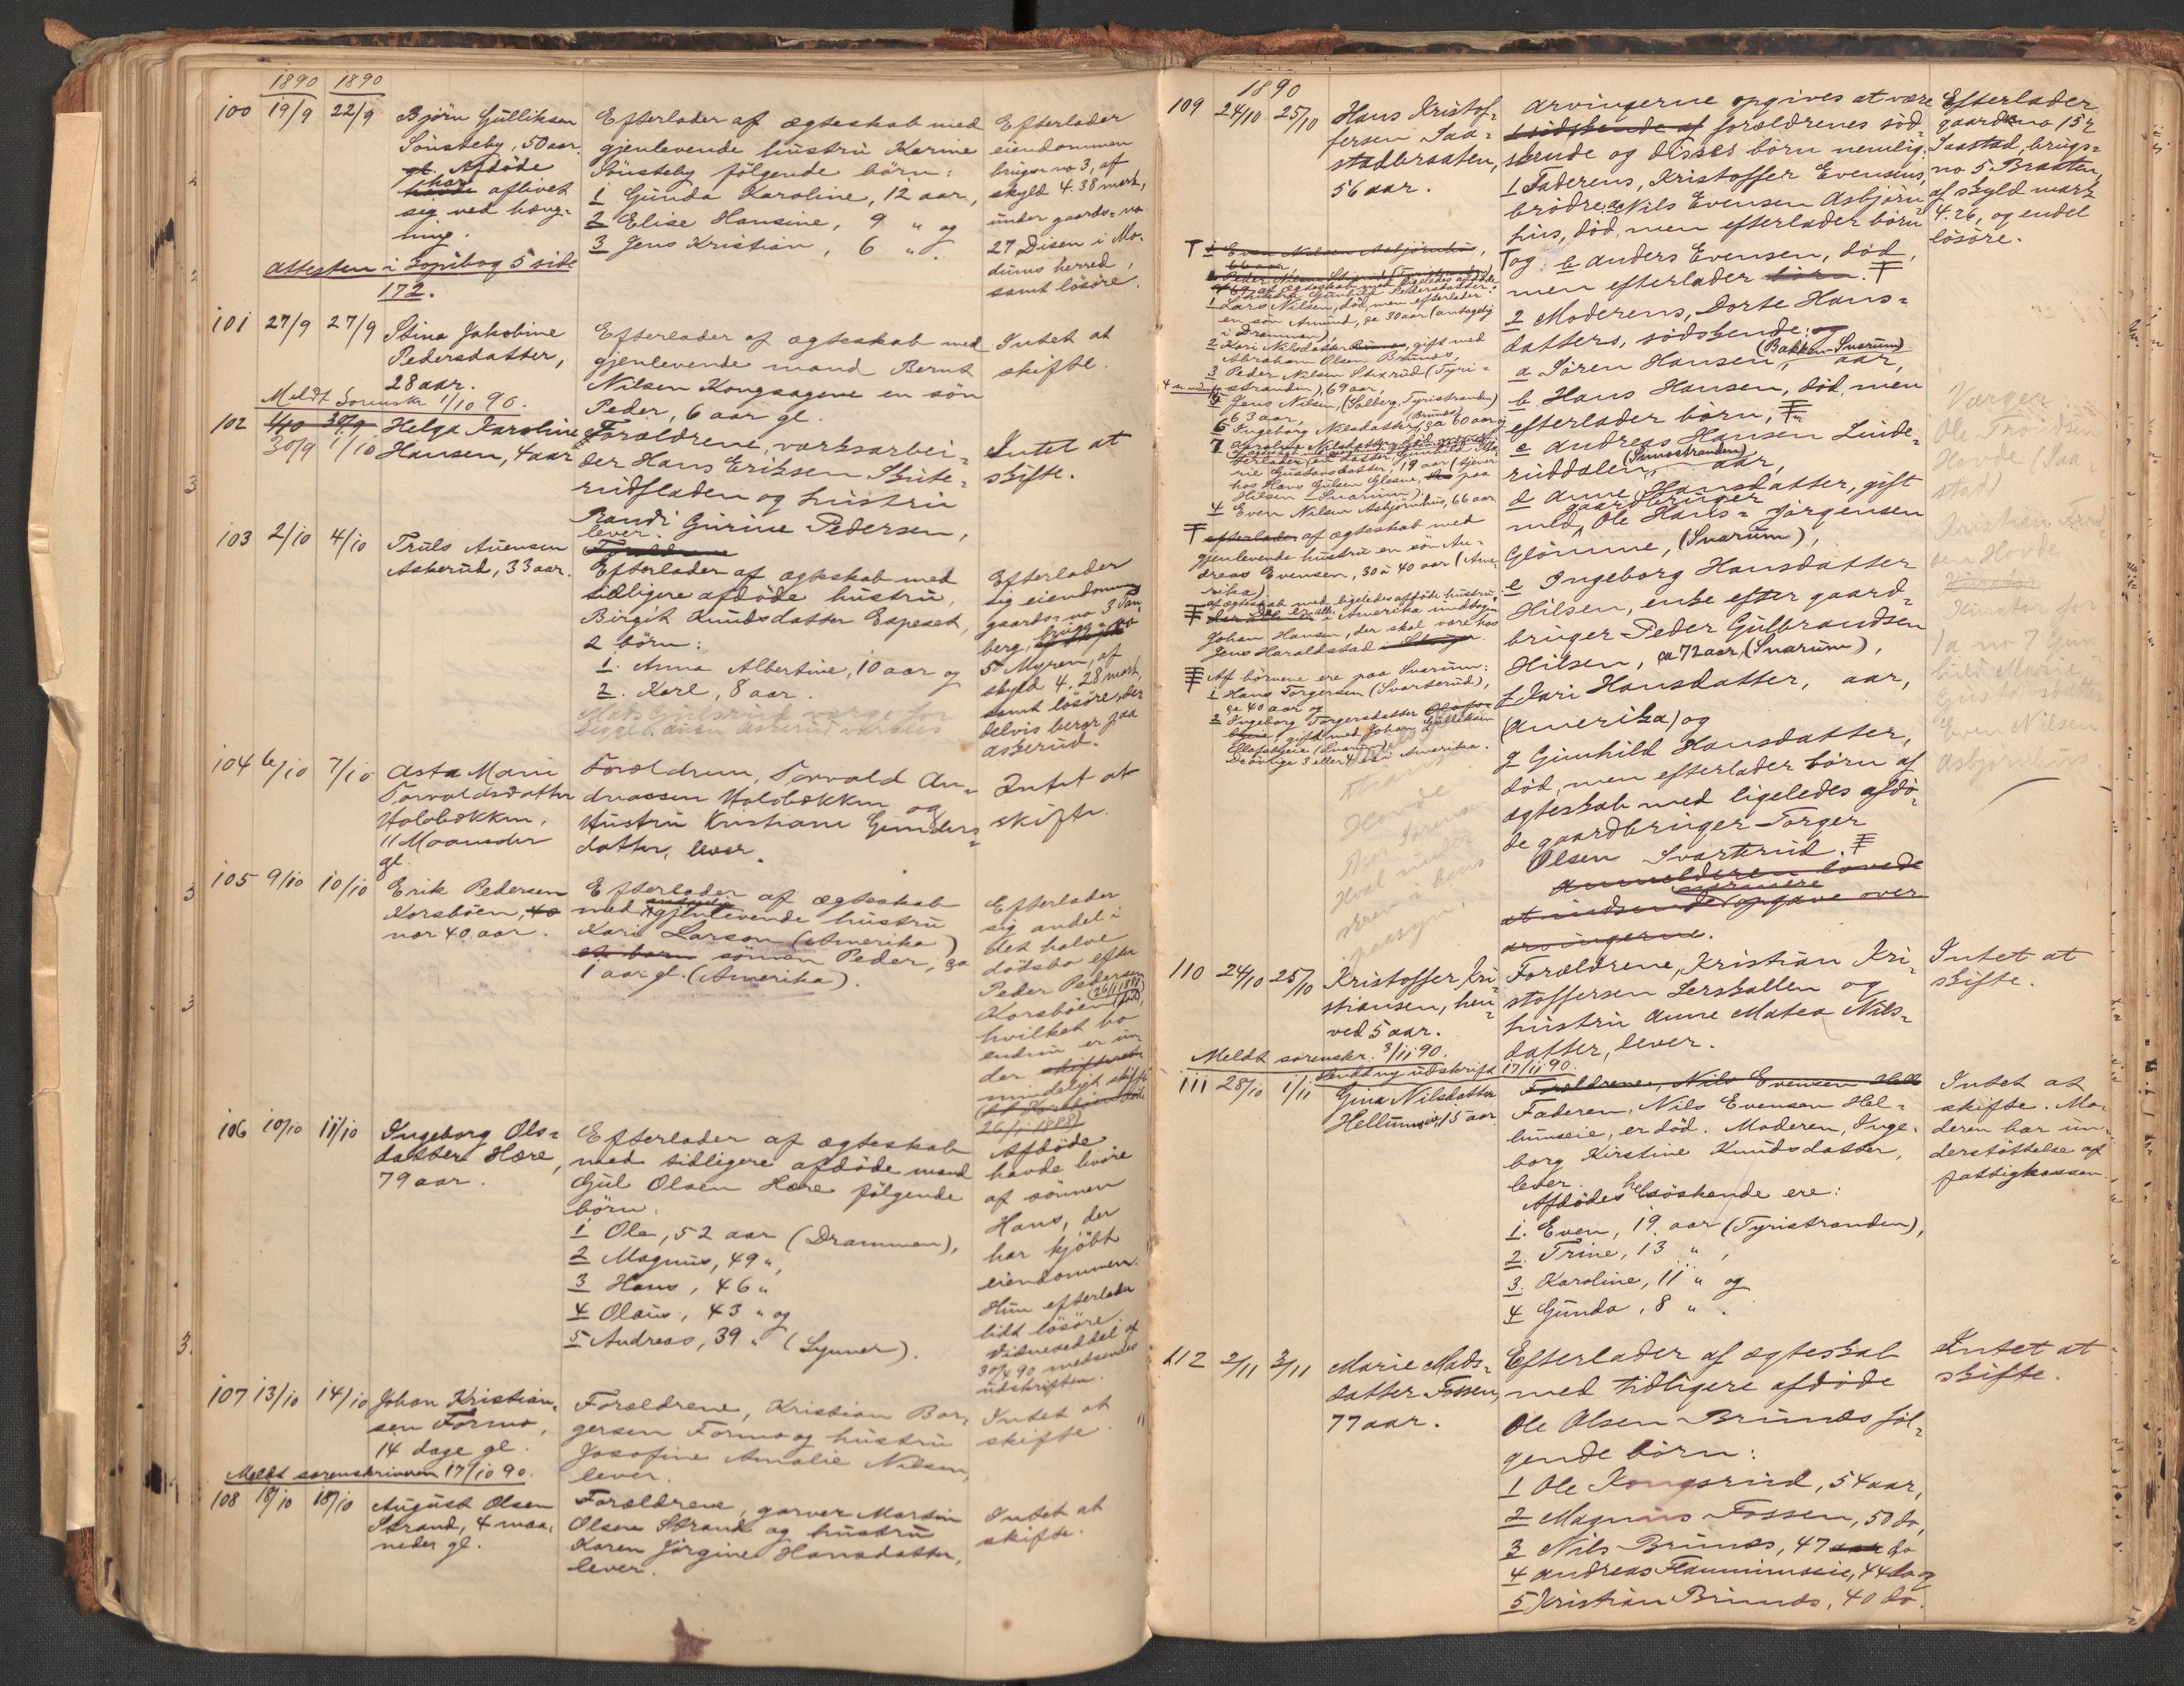 1890 1890
100 19/9 22/9 Björn Gülliksen
Sönsteby, 50 aar.
gl. Afdöde
har
havde aflivet
sig ved hæng-
ning.
Attesten i Kopibog 5 side
172.
Efterlader af ægteskab med
gjenlevende hustru Karine
Sönsteby følgende börn:
1 Gunda Karoline, 12 aar,
2 Elise Hansine, 9 " og
3 Jens Kristian, 6 ".
Efterlader
eiendommen
brugs no 3, af
skyld 4.38 mark,
under gaards-no
27 Disen i Mo-
dums herred,
samt lösöre.
101 27/9 27/9 Stina Jakobine
Pedersdatter,
28 aar.
Efterlader af ægteskab med
gjenlevende mand Bernt
Nilsen Kongssagene en sön
Peder, 6 aar gl.
Intet at
skifte.
Meldt Sorenskr 1/10 90.
102 1/10 30/9 Helga Karoline
30/9 1/10 Hansen, 4 aar
Forældrene, verksarbei-
der Hans Eriksen Skute-
rudfladen og hustru
Randi Gurine Pedersen,
lever.
Intet at
skifte.
103 2/10 4/10 Truls Auensen
Askerud, 33 aar.
Forældrene
Efterlader af ægteskab med
tidligere afdöde hustru,
Birgit Knudsdatter Espeset,
2 börn:
1. Anna Albertine, 10 aar og
2. Karl, 8 aar.
Mads Gulsrud værge for
begge
Efterlader
sig eiendommen
gaards-no 3 Tan-
berg, brugs-no
5 Myren, af
skyld 4.28 mark,
samt lösöre, der
delvis beror paa
Askerud.
104 6/10 7/10 Asta Marie
Torvaldsdatter
Holobækken,
11 Maaneder
gl.
Forældrene, Torvald An-
dreassen Holobækken og
Hustru Kristiane Gunders-
datter, lever.
Intet at
skifte.
105 9/10 10/10 Erik Pedersen
Korsböen, 40
nær 40 aar.
Efterlader af ægteskab
med antagelig gjenlevende hustru
Kari Larson (Amerika)
et barn sönnen Peder, ca
1 aar gl. (Amerika).
Efterlader
sig andel i
det halve
dödsbo efter
Peder Pedersen
Korsböen (död 26/1 1888),
hvilket bo
endnu er un-
der skifteret
mindeligt skifte
26/1 1888)
106 10/10 11/10 Ingeborg Ols-
datter Hære,
79 aar.
Efterlader af ægteskab
med tidligere afdöde mand
Gul Olsen Hære følgende
börn.
1 Ole, 52 aar (Drammen),
2 Magnus, 49 ",
3 Hans, 46 "
4 Olaus, 43 " og
5 Andreas, 39 " (Lynner).
Afdöde
havde livöre
af sönnen
Hans, der
har kjöbt
eiendommen.
Hun efterlader
lidt lösöre.
Vidneseddel af
30/4 90 medsendes
udskriften.
107 13/10 14/10 Johan Kristian-
sen Formo,
14 dage gl.
Forældrene, Kristian Bor-
gersen Formo og hustru
Josefine Amalie Nilsen,
lever.
Intet at
skifte.
Meldt sorenskriveren 17/10 90.
108 18/10 18/10 August Olsen
Strand, 4 maa-
neder gl.
Forældrene, garver Martin
Olsen Strand og hustru
Karen Jörgine Hansdatter,
lever.
Intet at
skifte.
1890
109 24/10 25/10 Hans Kristof-
fersen Saa-
stadbraaten,
56 aar.
Arvingerne opgives at være
södskende af forældrenes söd-
skende og disses börn nemlig:
1 Faderens, Kristoffer Evensens,
brödre, a Nils Evensen Asbjörn-
hus, död, men efterlader börn
og b Anders Evensen, död,
men efterlader börn.
2 Moderens, Dorte Hans-
datters, södskende: og
a Sören Hansen, (Bakken-Snarum) aar,
b Hans Hansen, död, men
efterlader börn,
c Andreas Hansen Linde-
ruddalen, (Snarstranden) aar,
d Anne Hansdatter, gift
med gaardbruger Ole Hans- Jörgensen
Glömme, (Snarum),
e Ingeborg Hansdatter
Hilsen, enke efter gaard-
bruger Peder Gulbrandsen
Hilsen, ca 72 aar, (Snarum),
f Kari Hansdatter, aar,
(Amerika) og
g Gunhild Hansdatter,
död, men efterlader börn af
ægteskab med ligeledes afdö-
de gaardbruger Torger
Olsen Svarterud.
Anmelderen lovede
at indsende nærmere opgave over
arvingerne.
Efterlader
gaards no 152
Saastad, brugs-
no 5 Braaten,
af skyld mark
4.26, og endel
lösöre.
1 Even Nilsen Asbjörnhus,
66 aar
1 Lars Nilsen, död, men efterlader
en sön Amund, ca 30 aar (antagelig
i Drammen),
2 Kari Nilsdatter Brunes, gift med
Abraham Olsen Brunes,
3 Peder Nilsen Stixrud (Tyri-
stranden), 69 aar,
5 Jens Nilsen, (Solberg, Tyristranden)
63 aar,
6 Ingeborg Nilsdatter, (Brunes) ca 60 aar og
7 Karoline Nilsdatter, död, men ef-
terlader en datter Gunhild Ma-
rie Gustavsdatter, 19 aar (tjener
hos Hans Gulsen Glesne, paa
Hilsen - Snarum).
4 Even Nilsen Asbjörnhus, 66 aar
efterlader af ægteskab med
gjenlevende hustru en sön An-
dreas Evensen, 30 à 40 aar (Ame-
rika).
af ægteskab med ligeledes afdöde hustru
alle i Amerika undtagen
Johan Hansen, der skal være hos
Jens Haraldstad
Af börnene ere paa Snarum:
1 Hans Torgersen (Svarterud),
ca 40 aar og
2 Ingeborg Torgersdatter
gift med Johan Gulliksen
Ellefsplassen (Snarum).
De övrige 3 eller 4 ere i Amerika.
Værger
Ole Trondsen
Hovde (Saa-
stad)
Kristian Trond-
sen Hovde
Kurator for
1 a no 7 Gun-
hild Marie
Gustavsdatter
Even Nilsen
Asbjörnhus
110 24/10 25/10 Kristoffer Kri-
stiansen, hen-
ved 5 aar.
Forældrene, Kristian Kri-
stoffersen Lerskallen og
hustru Anne Matea Nils-
datter, lever.
Intet at
skifte.
Meldt sorenskr. 3/11 90.
Sendt ny udskrift 17/11 90.
111 28/10 1/11 Gina Nilsdatter
Hellumseie, 15 aar.
Forældrene, Nils Evensen Hell
Faderen, Nils Evensen Hel-
lumseie, er död. Moderen, Inge-
borg Kirstine Knudsdatter,
lever.
Afdödes helsöskende ere:
1. Even, 19 aar (Tyristranden),
2. Trine, 13 ",
3. Karoline, 11 " og
4 Gunda, 8 ".
Intet at
skifte. Mo-
deren har un-
derstöttelse af
fattigkassen.
112 2/11 3/11 Marie Mads-
datter Fossen,
77 aar.
Efterlader af ægteskab
med tidligere afdöde
Ole Olsen Brunes föl-
gende börn:
1 Ole Kongsrud, 54 aar,
2 Magnus Fossen, 50 do,
3 Nils Brunes, 47 aar do
4 Andreas Flannumseie, 44 do og
5 Kristian Brunes, 40 do.
Intet at
skifte.